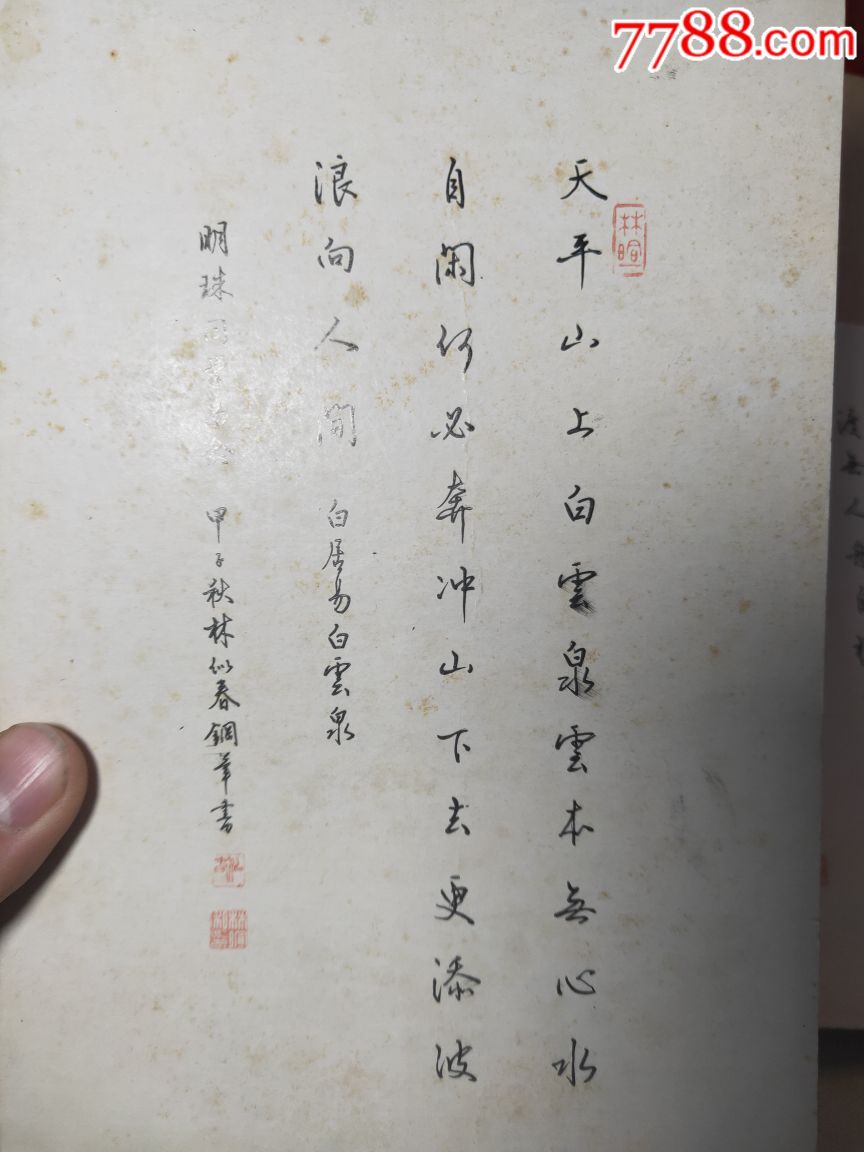 7788.com
天平山上白雲泉雲本無心水
自闲何必奔冲山下去更添波
浪向人间 白居易白雲泉
明珠 甲子秋林似春鋼笔書
林